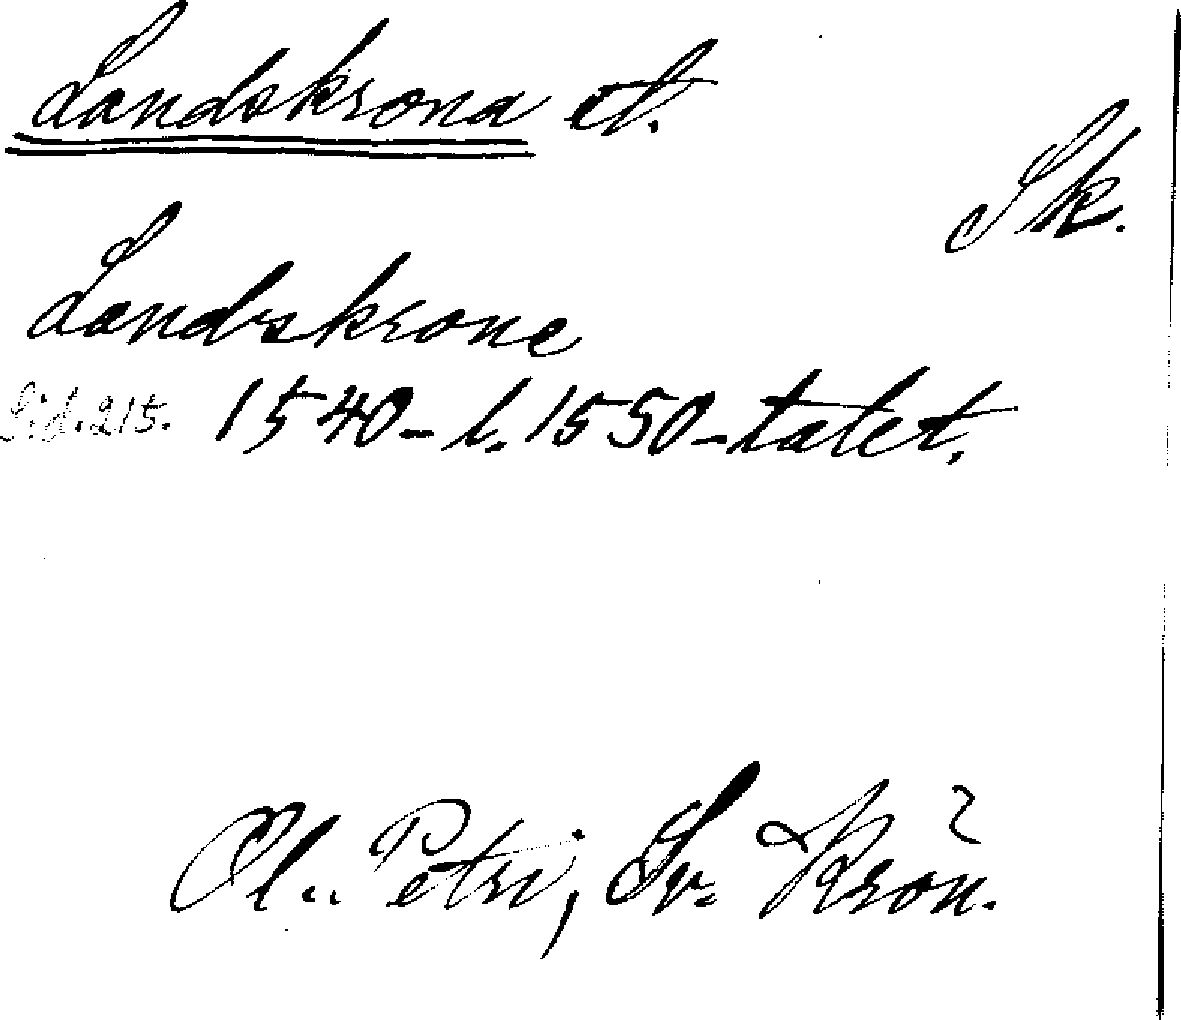 Landskrona st.
Sk.
Landskrone
Sid. 215. 1540- l. 1550-talet.
Ol. Petri, Sv. Krön. 2